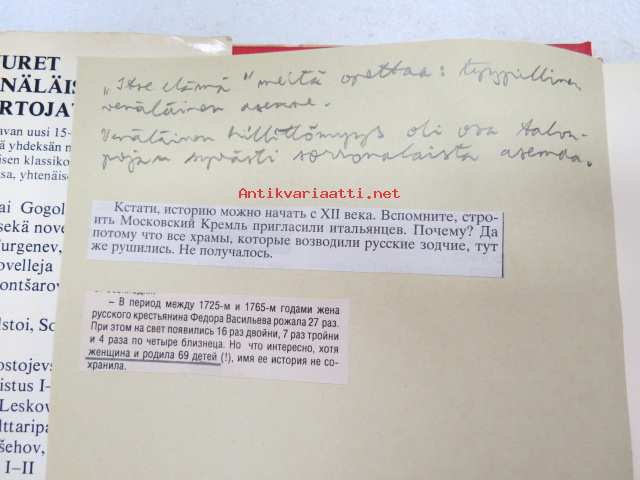 UURET
ENÄLÄIS
ERTOJAT
avan uusi 15-
ä yhdeksän n
isen klassiko
sa, yhtenäise
ai Gogol
sekä nove
Turgenev,
ovelleja
ontšarov
lstoi, So
ostojevs
istus I–
Leskov
lttaripa
šehov,
I–II
„Itse elämä" meitä opettaa: tyypillinen
venäläinen asenne.
Venäläinen hillittömyys oli osa talon-
pojan syvästi sorronalaista asemaa.
Antikvariaatti.net
Кстати, историю можно начать с XII века. Вспомните, стро-
ить Московский Кремль пригласили итальянцев. Почему? Да
потому что все храмы, которые возводили русские зодчие, тут
же рушились. Не получалось.
– В период между 1725-м и 1765-м годами жена
русского крестьянина Федора Васильева рожала 27 раз.
При этом на свет появились 16 раз двойни, 7 раз тройни
и 4 раза по четыре близнеца. Но что интересно, хотя
женщина и родила 69 детей (!), имя ее история не со-
хранила.